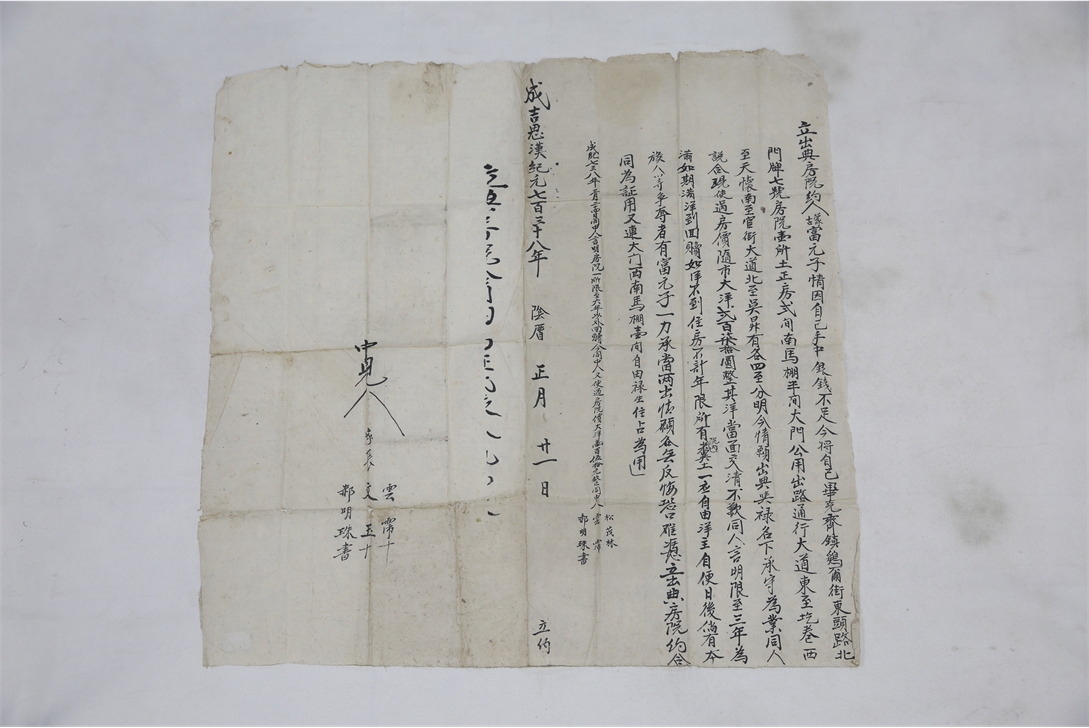 立出典房院約人蒙富元子情因自己手中銀錢不足今將自己畢克齊鎮鷄爾街東頭路北
門牌七號房院壹所土正房弍间南馬棚半间大門公用出路通行大道東至圪巷西
至天懷南至官街大道北至吳昇有各四至分明今情願出典與禄名下承守為業同人
說合現使過房價隨市大洋弍百柒拾圓整其洋當面交清不欠同人言明限至三年為
滿如期滿洋到回贖如洋不到住房不計年限所有院内糞土一應自由洋主自便日後倘有本
族人等爭奪者有富元子一力承當两出情願各無反悔恐口難憑立出典房院約合
同為証用又連大门西南馬棚壹间自由禄出住占為用
成紀七三八年 同中人言明房院一所限至六年 回贖 同中人又使過房院價大洋 百伍拾元整同中人
松茂林
雲霈
郝明珠書
成吉思漢紀元七百三十八年 陰曆 正月 廿一日 立約
中見人
雲霈十
文玉十
郝明珠書